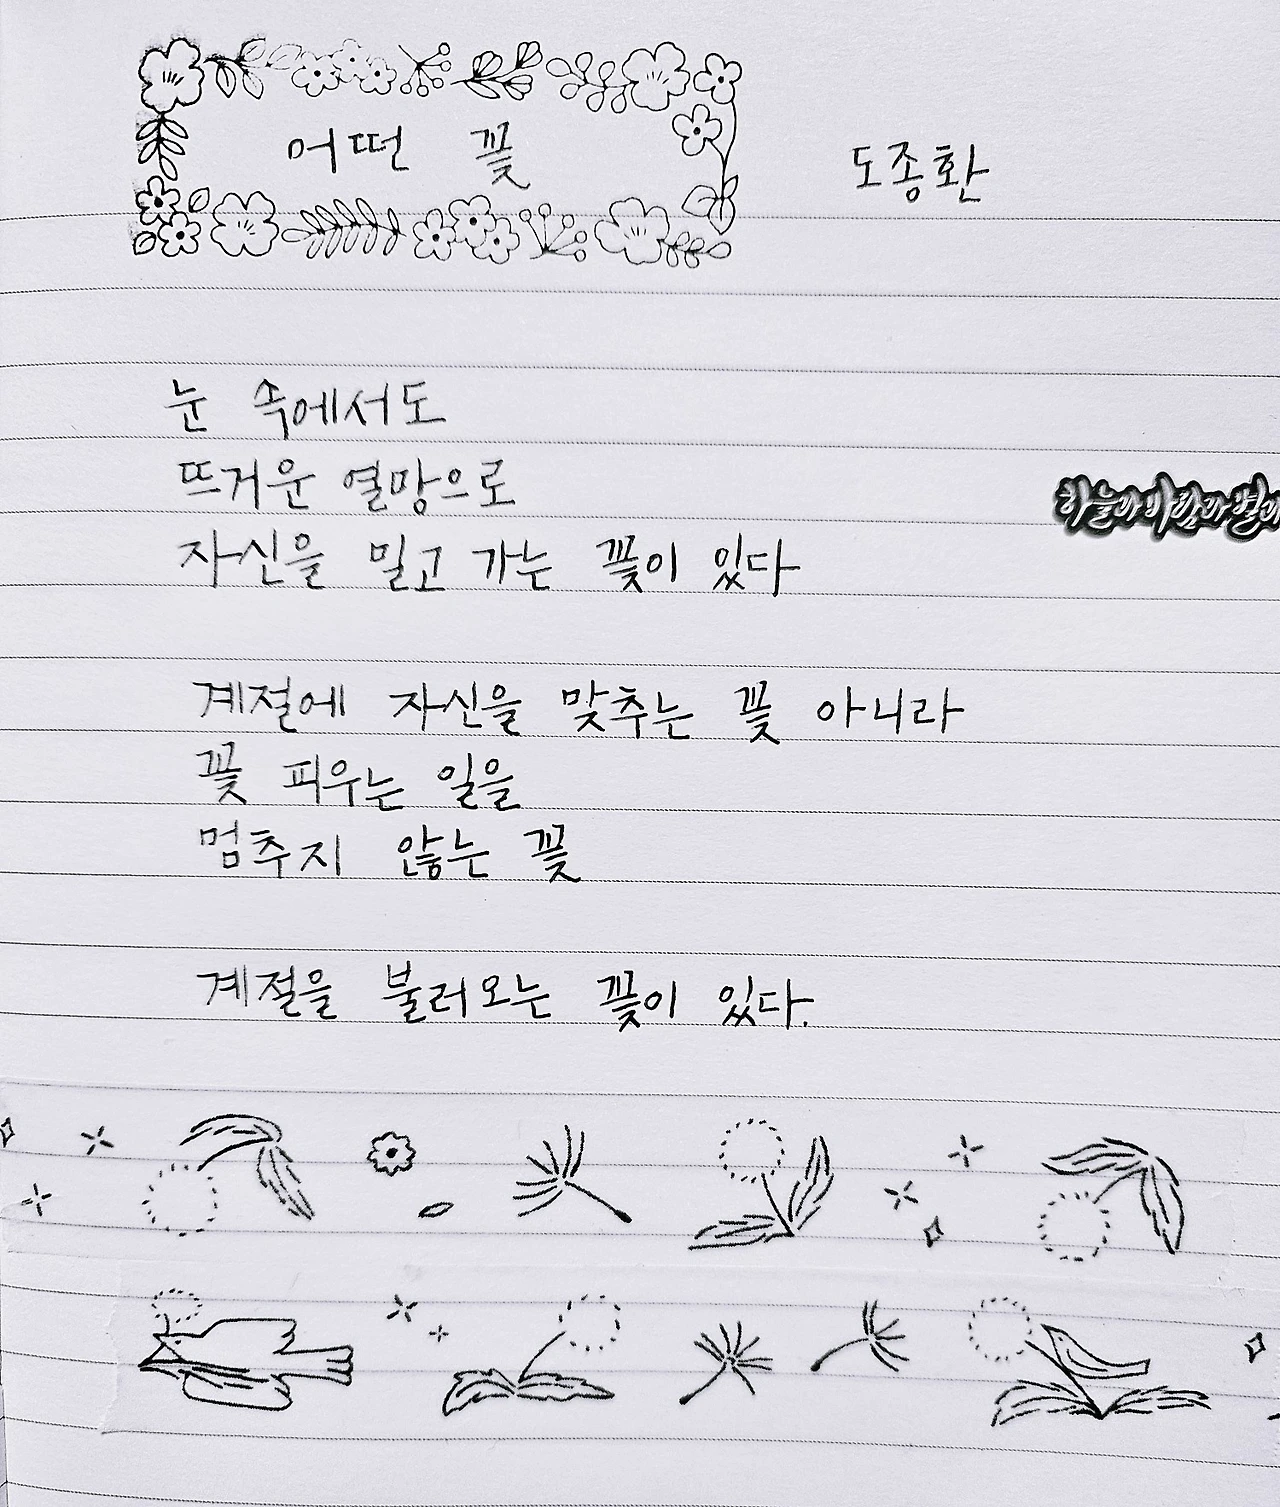 어떤 꽃
도종환
눈 속에서도
뜨거운 열망으로
하늘과 바람과 별과
자신을 밀고 가는 꽃이 있다
계절에 자신을 맞추는 꽃 아니라
꽃 피우는 일을
멈추지 않는 꽃
계절을 불러오는 꽃이 있다.